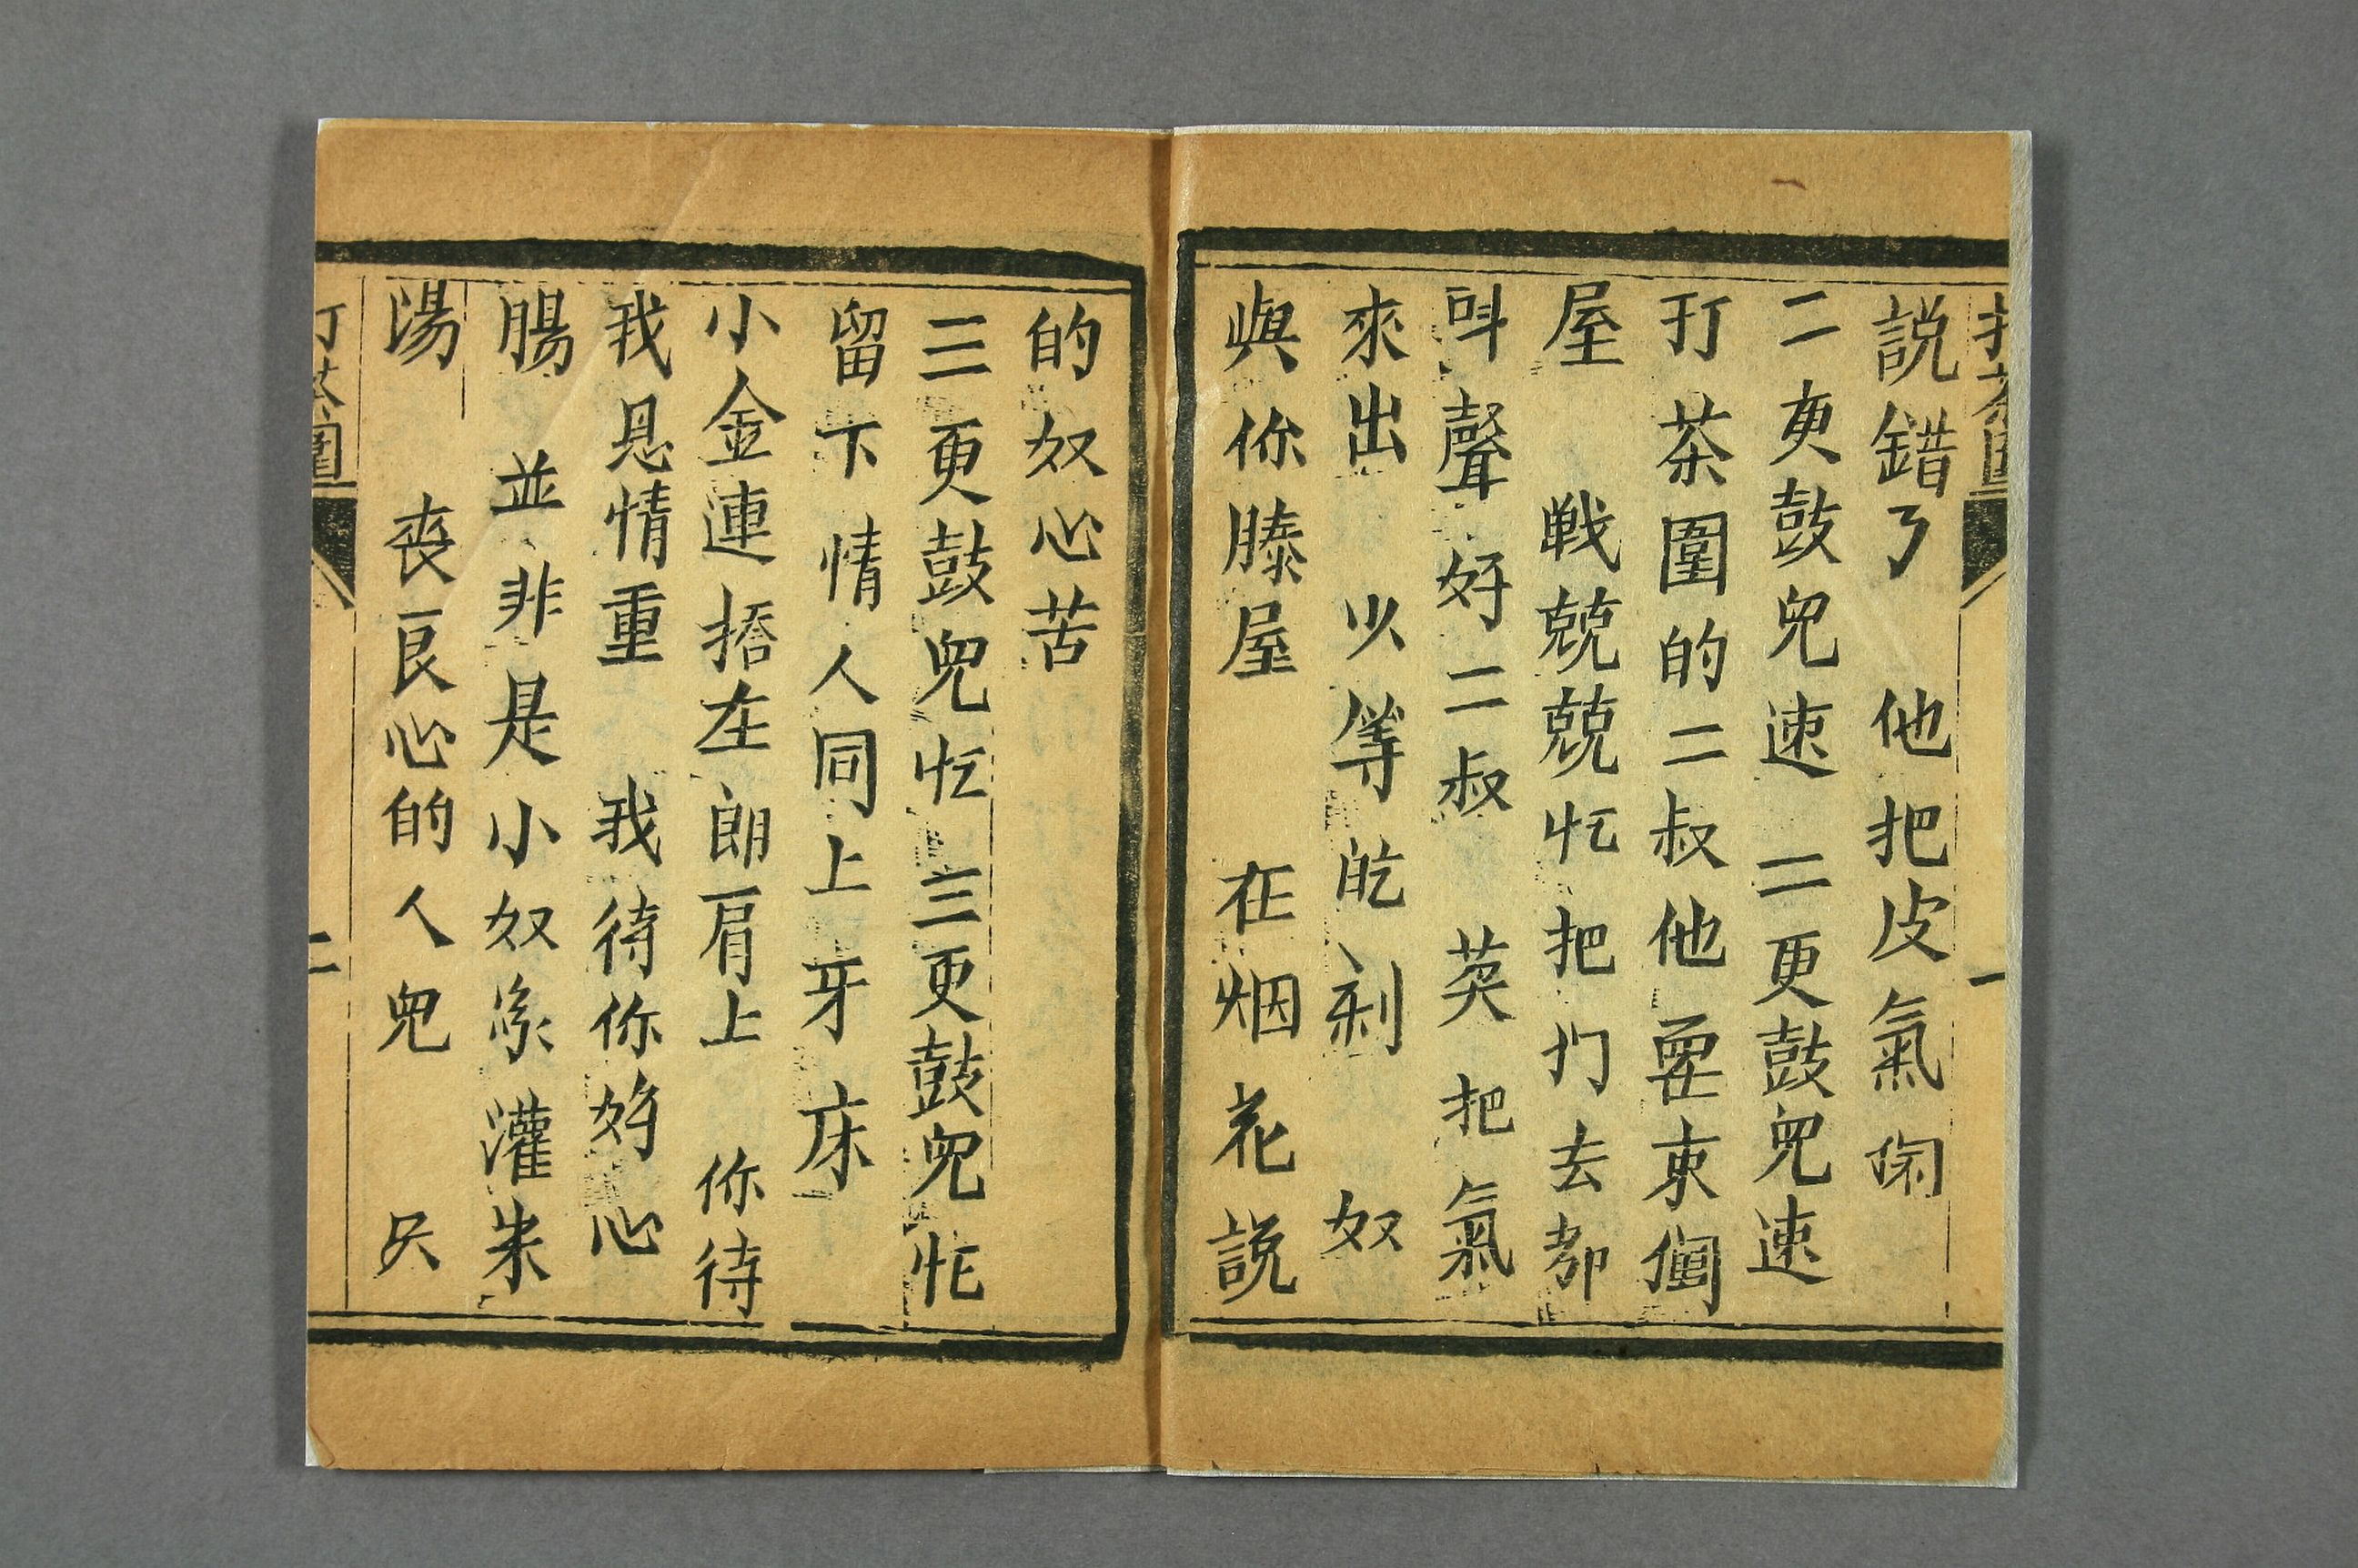 打茶圍
一
説錯了 他把皮氣鬧
二更鼓兒速 二更鼓兒速
打茶圍的二叔他要来闖
屋 戦兢兢忙把门去都
呌聲好二叔 莫把氣
來出 少等的刻 奴
與你滕屋 在烟花説
的奴心苦
三更鼓兒忙三更鼓兒忙
留下情人同上牙床
小金連搭在郎肩上 你待
我恩情重 我待你好心
腸 並非是小奴家灌米
湯 丧良心的人兒
打茶圍
二